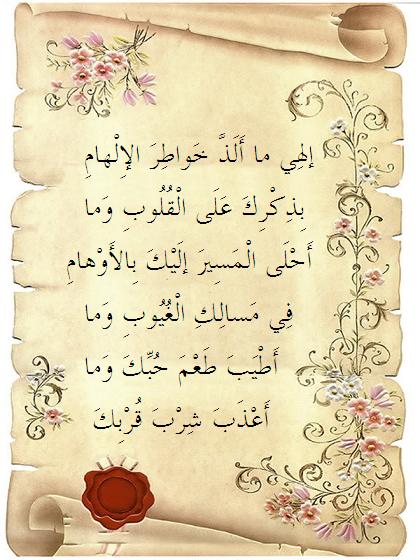 إلهِي ما أَلَذَّ خَواطِرَ الإِلْهامِ
بِذِكْرِكَ عَلَى الْقُلُوبِ وَما
أَحْلَى الْمَسِيرَ إلَيْكَ بِالأَوْهامِ
فِي مَسالِكِ الْغُيُوبِ وَما
أَطْيَبَ طَعْمَ حُبِّكَ وَما
أَعْذَبَ شِرْبَ قُرْبِكَ